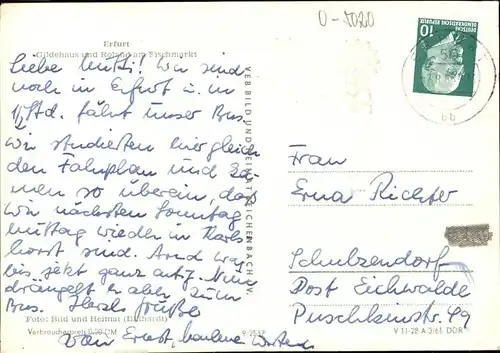 0-5020
Erfurt
Gildehaus und Roland am Fischmarkt
Liebe Mutti! Wir sind
noch in Erfurt u. in
1½ Std. fährt unser Bus.
Wir studierten hier gleich
den Fahrplan und
men so überein, daß
wir nächsten Sonntag
mittag wieder in Karls
horst sind. Arnd war
bis jetzt ganz artig. Nun
drängelt er aber zum
Bus. Herzl. Grüße
von Ernst,
Foto: Bild und Heimat
Verbraucherpreis 0,20 DM
VEB BILD UND HEIMAT REICHENBACH I. V.
DEUTSCHE
DEMOKRATISCHE REPUBLIK
10
bb
Frau
Erna Richter
Schulzendorf
Post Eichwalde
Puschkinstr. 49
V 11-28 A 3/61 DDR